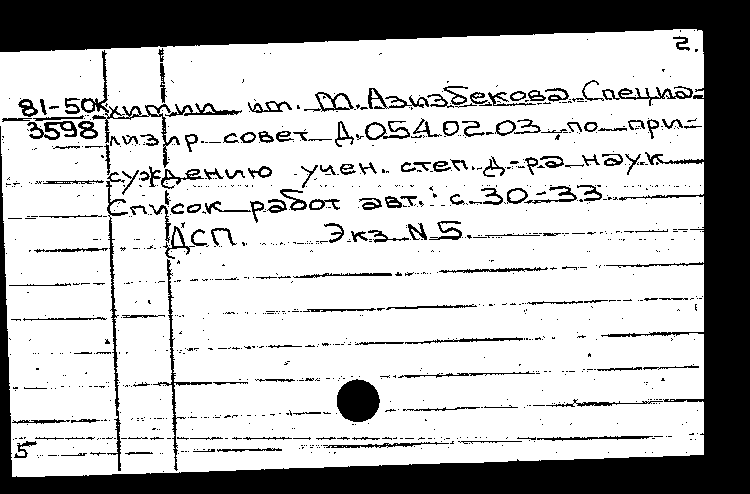 2.
81-50к химии им. М. Азизбекова. Специа-
3598 лизир. совет Д.054.02.03 по при-
суждению учен. степ. д-ра наук
Список работ авт.: с. 30-33
ДСП. Экз. N 5.
5